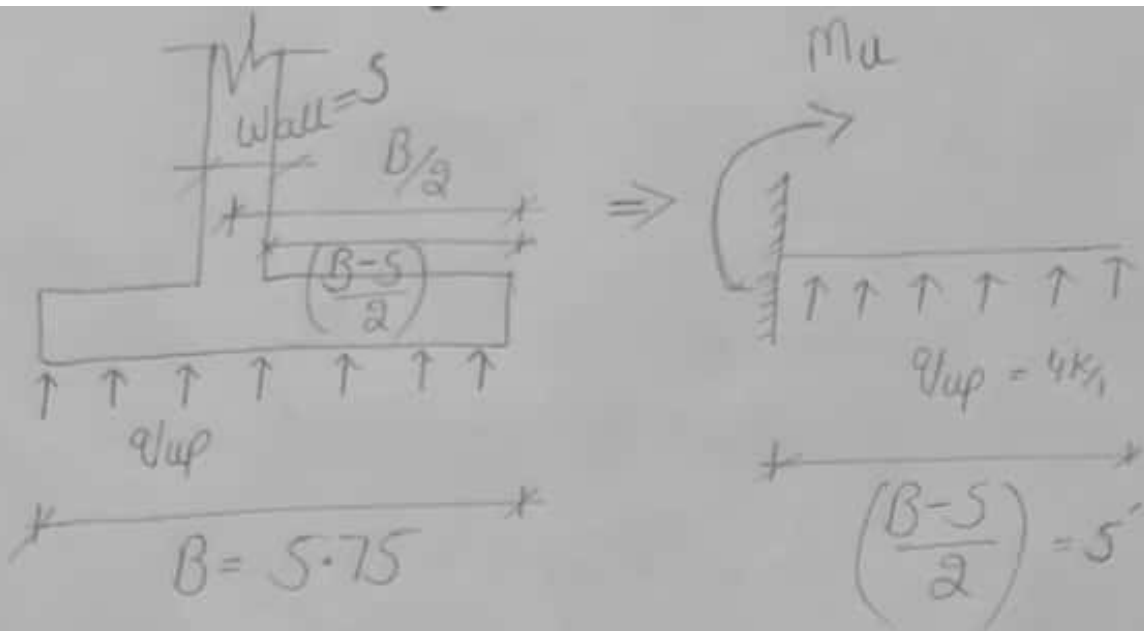 Wall = S
B/2
(B-S/2)
qup
B = 5.75
⇒
Mu
qup = 4K/1
(B-S/2) = 5'